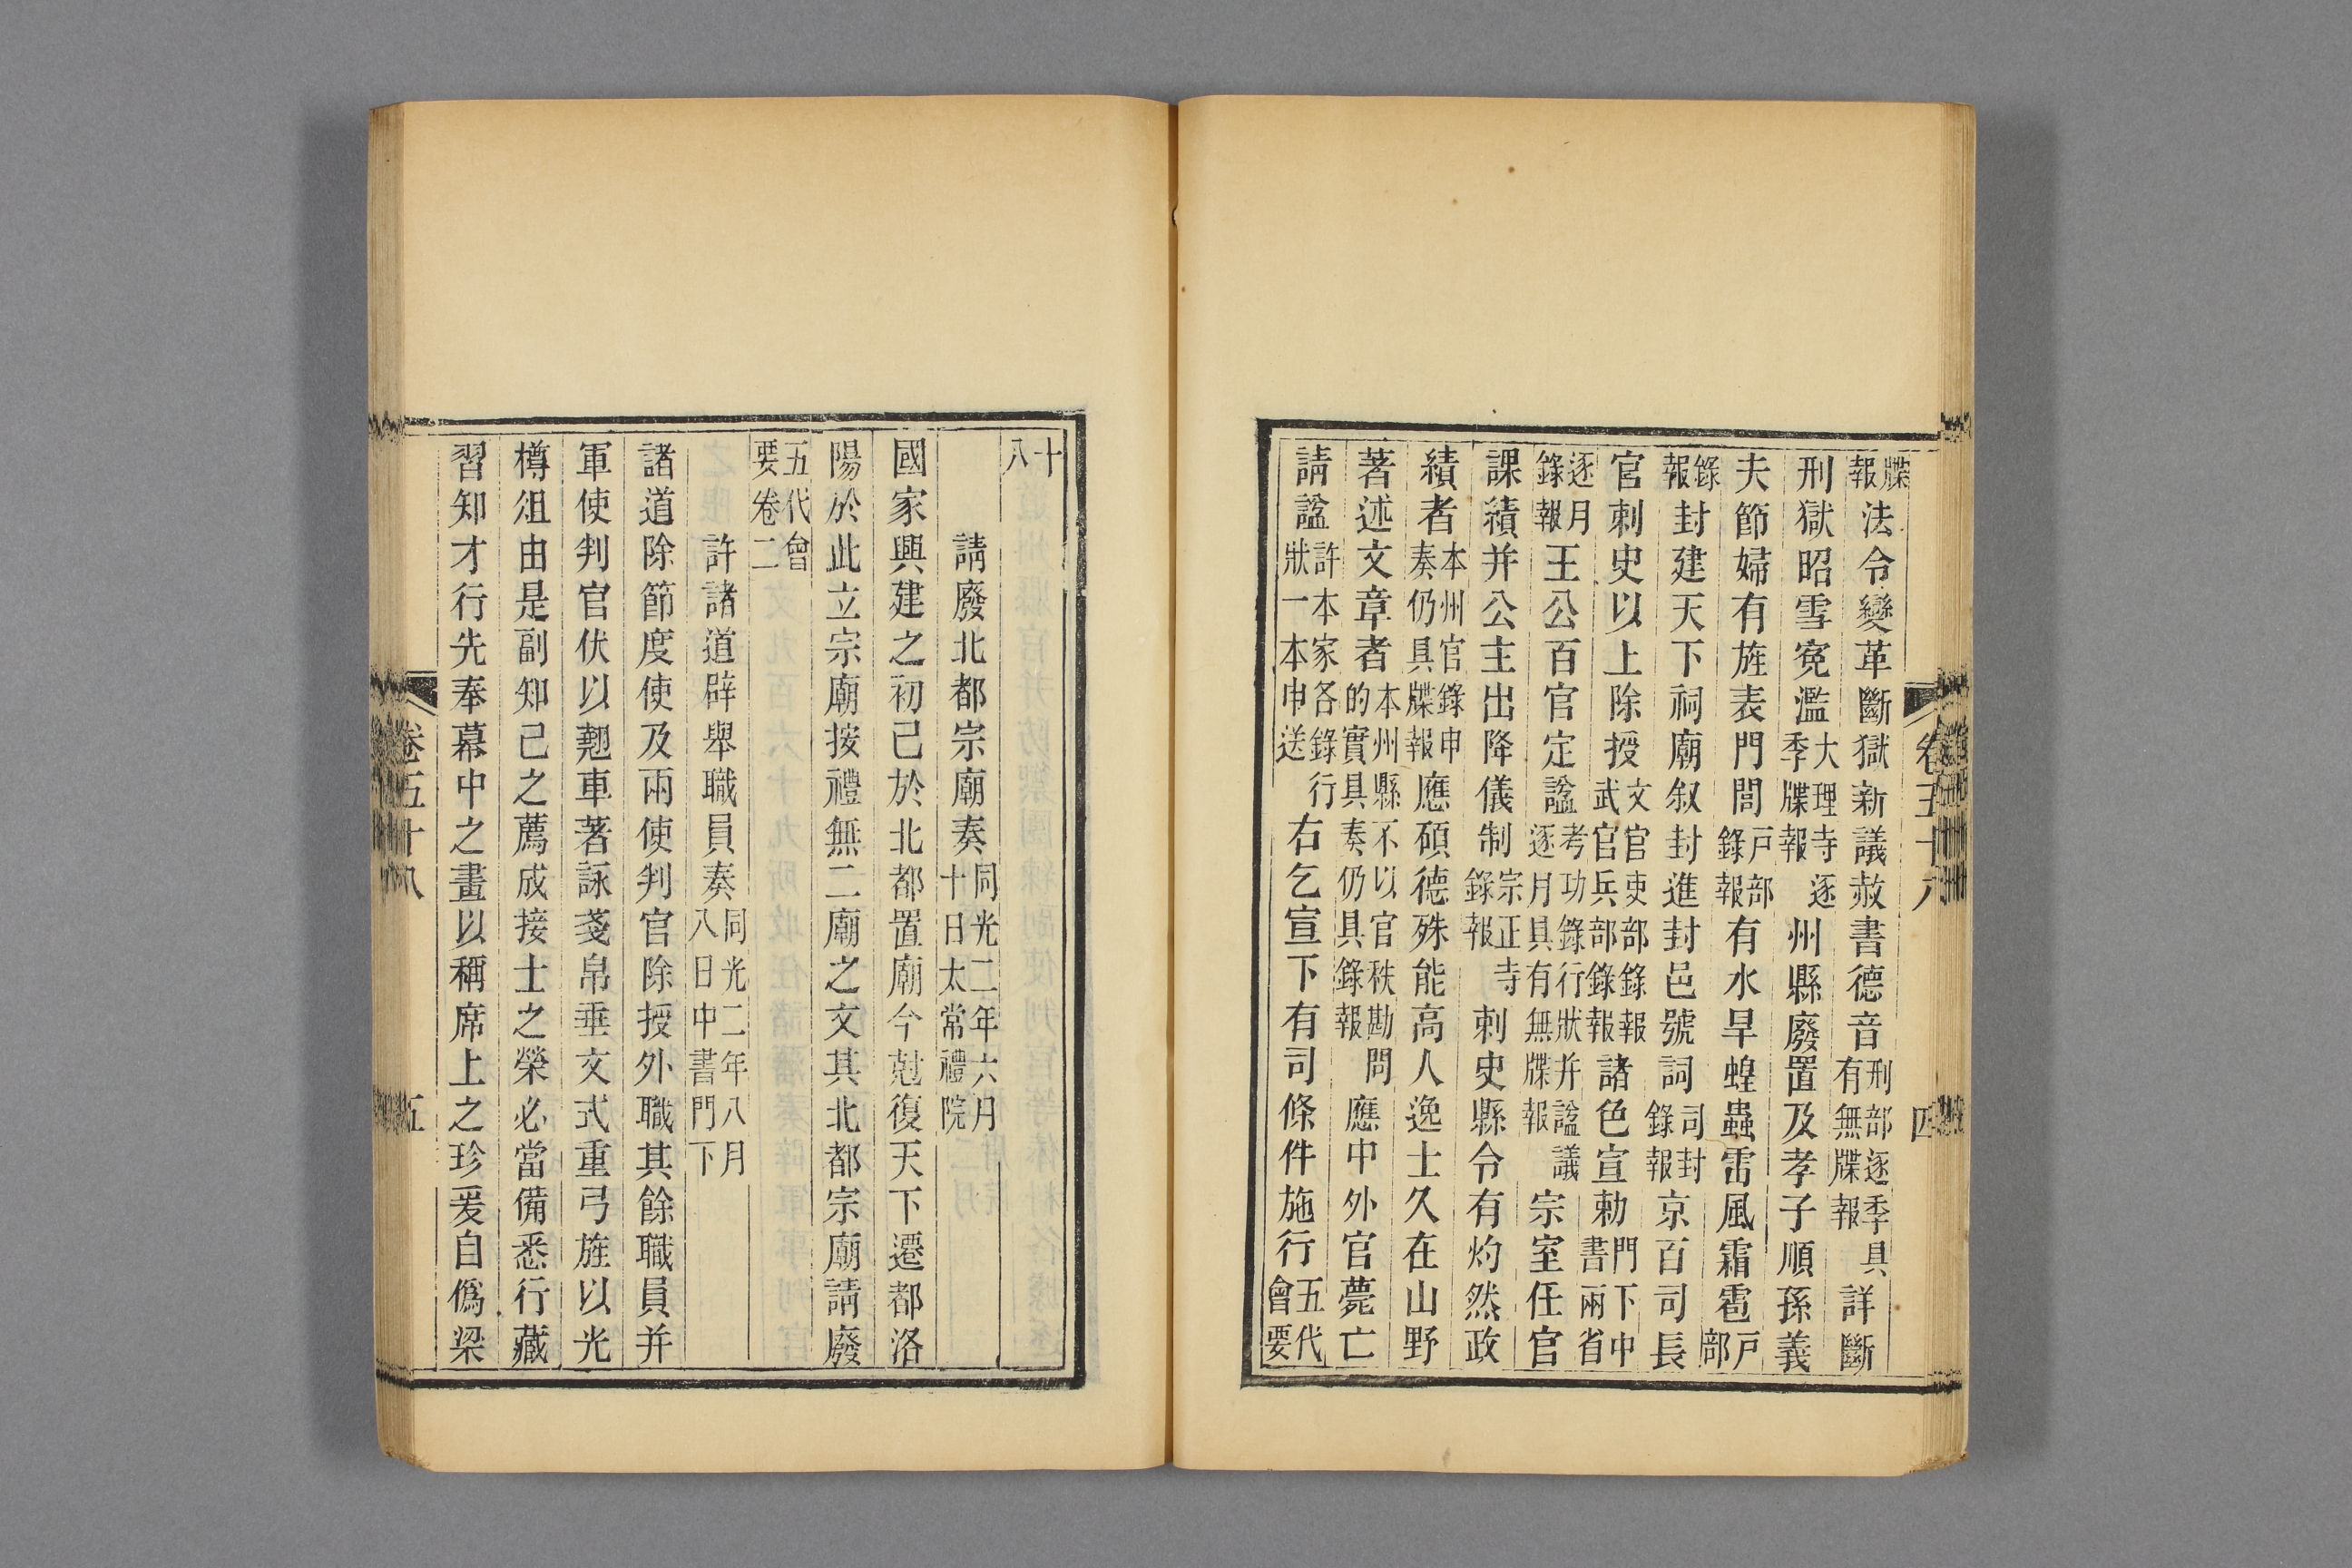 牒報法令變革斷獄新議赦書德音刑部逐季具有無牒報詳斷
刑獄昭雪寃濫大理寺逐季牒報州縣廢置及孝子順孫義
夫節婦有旌表門閭戶部錄報有水旱蝗蟲雷風霜雹戶部
錄報封建天下祠廟叙封進封邑號詞司封錄報京百司長
官刺史以上除授文官吏部錄報武官兵部錄報諸色宣勅門下中書兩省
逐月錄報王公百官定諡考功錄行狀并諡議逐月具有無牒報宗室任官
課績并公主出降儀制宗正寺錄報刺史縣令有灼然政
績者本州官錄申奏仍具牒報應碩德殊能高人逸士久在山野
著述文章者本州縣不以官秩勘問的實具奏仍具錄報應中外官薨亡
請諡許本家各錄行狀一本申送右乞宣下有司條件施行五代會要
卷五十八 四
十八
請廢北都宗廟奏同光二年六月十日太常禮院
國家興建之初已於北都置廟今尅復天下遷都洛
陽於此立宗廟按禮無二廟之文其北都宗廟請廢
五代會要卷二
許諸道辟舉職員奏同光二年八月八日中書門下
諸道除節度使及兩使判官除授外職其餘職員并
軍使判官伏以翹車著詠戔帛垂文式重弓旌以光
樽俎由是副知己之薦成接士之榮必當備悉行藏
習知才行先奉幕中之畫以稱席上之珍爰自僞梁
卷五十八 五